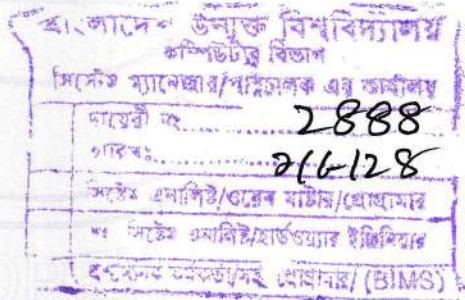 বাংলাদেশ উন্মুক্ত বিশ্ববিদ্যালয়
কম্পিউটার বিভাগ
সিস্টেম ম্যানেজার/পরিচালক এর কার্যালয়
ডায়েরী নং ............ 2888
তারিখঃ ............
সিস্টেম এনালিষ্ট/ওয়েব মাষ্টার/প্রোগ্রামার
সিস্টেম এনালিষ্ট/হার্ডওয়্যার ইঞ্জিনিয়ার
প্রোগ্রামার/ (BIMS)